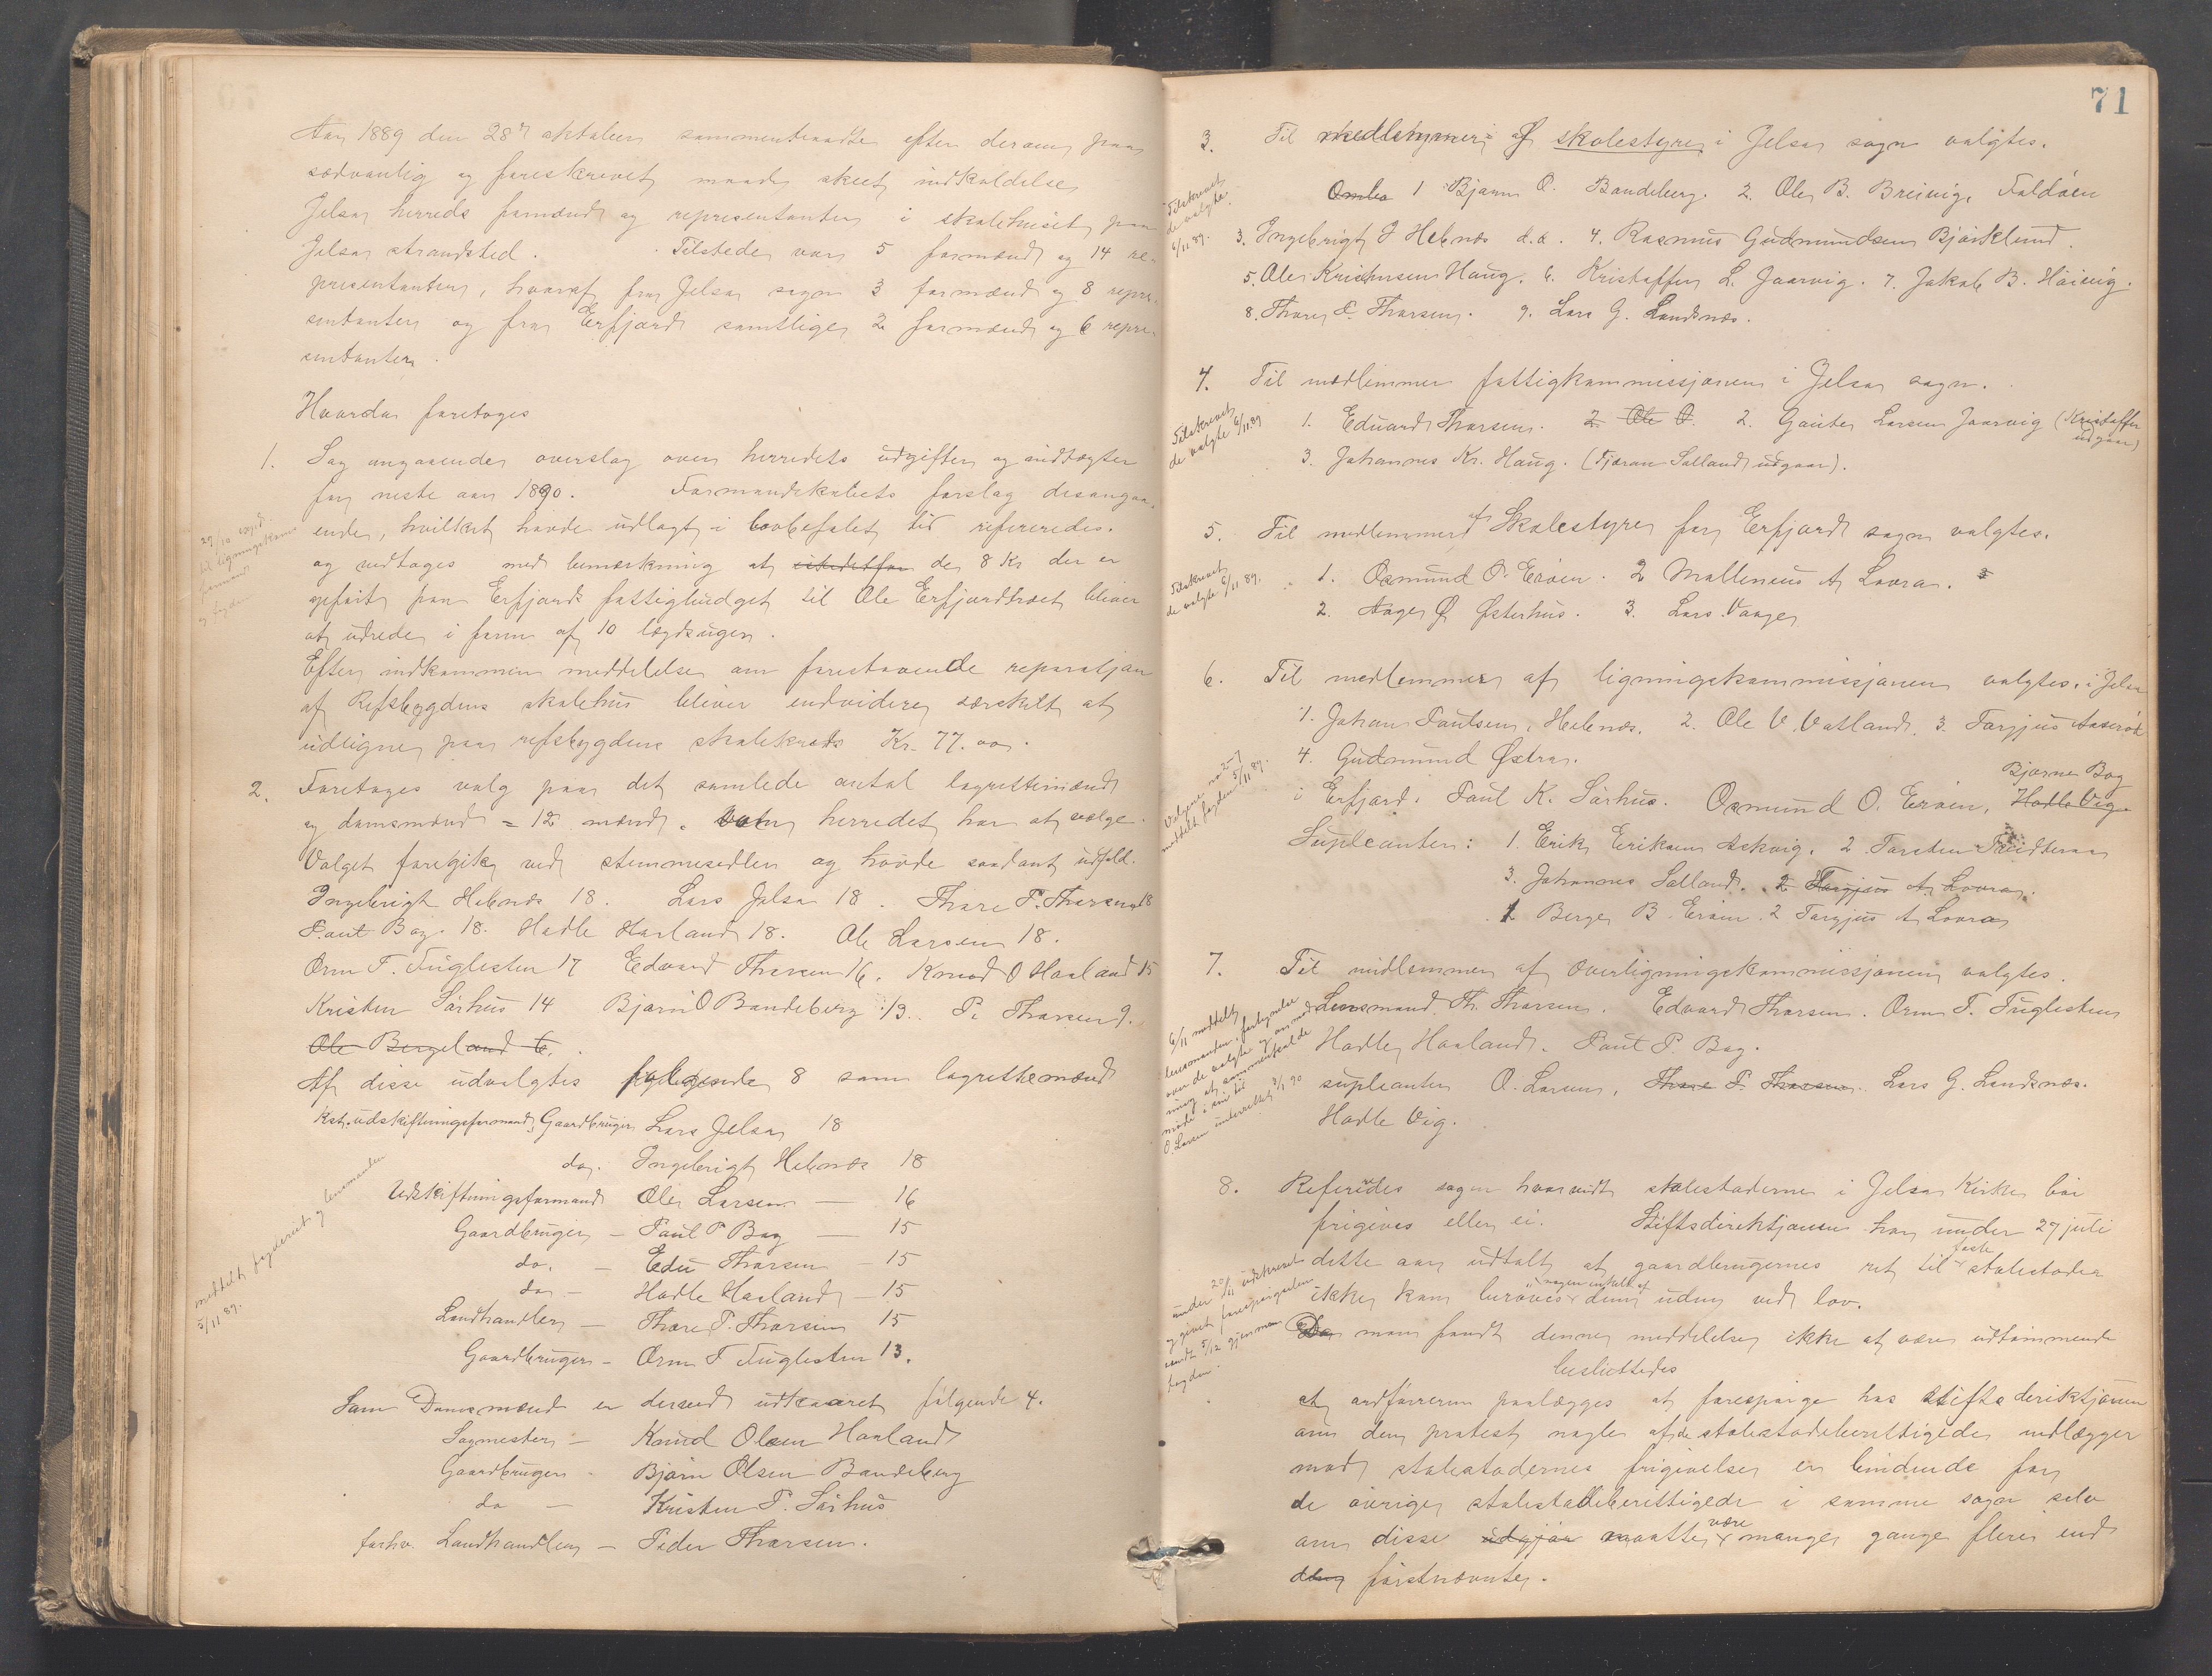 Aar 1889 den 28 oktober sammentraadte efter derom paa
sædvanlig og foreskrevet maade skeet indkaldelse
Jelsa herreds formænd og repræsentanter i skolehuset paa
Jelsa strandsted. Tilstede var 5 formænd og 14 re-
præsentanter, hvoraf fra Jelsa sogn 3 formænd og 8 repre-
sentanter og fra Erfjord samtlige 2 formænd og 6 repre-
sentanter.
Hvorda foretoges
1. Sag angaaende overslag over herredets udgifter og indtægter
for neste aar 1890. Formandskabets forslag desangaa-
ende, hvilket havde udlagt i lovbefalet tid refereredes.
og vedtoges med bemærkning at istedetfor de 8 Kr der er
opført paa Erfjords fattigbudget til Ole Erfjordtræet bliver
at udrede i form af 10 lægdsuger.
29/10 
til ligningskom
formand
og fogden
Efter indkommen meddelelse om forestaaende reparatjon
af Refsbygdens skolehus bliver endvidere særskilt at
udligne paa refsbygdens skolekreds Kr. 77.00.
2. Foretoges valg paa det samlede antal lagrettemænd
og domsmænd = 12 mænd, herredet har at vælge.
Valget foregik ved stemmesedler og havde saadant udfald.
Ingebrigt Hebnæs 18. Lars Jelsa 18. Thore P. Thorsen 18
Paul Bog. 18. Hadle Haaland 18. Ole Larsen 18.
Orm T. Fuglesten 17 Edvard Thorsen 16. Knud O Haaland 15
Kristen Sørhus 14 Bjørn O Bandeberg 13. P. Thorsen 9.
Ole Bergeland 6.
Af disse udvalgtes følgende 8 som lagrettemænd
Kst. udskiftningsformand, Gaardbruger Lars Jelsa 18
do. Ingebrigt Hebnæs 18
Udskiftningsformand Ole Larsen — 16
Gaardbruger — Paul P Bog — 15
do. — Edv Thorsen — 15
do — Hadle Haaland — 15
Landhandler — Thore P. Thorsen 15
Gaardbruger — Orm T Fuglesten 13.
meddelt fogderiet og lensmanden
5/11 89.
Som Domsmænd er derved udkaaret følgende 4.
Sagmester — Knud Olsen Haaland
Gaardbruger - Bjørn Olsen Bandeberg
do — Kristen P. Sørhus
forhv. Landhandler — Peder Thorsen.
71
3. Til medlemmer af skolestyre i Jelsa sogn valgtes.
1 Bjørn O. Bandeberg. 2. Ole B. Breivig, Foldøen
3. Ingebrigt J Hebnæs d.æ. 4. Rasmus Gudmundsen Bjørklund.
5. Ole Kristensen Haug. 6. Kristoffer L. Jaarvig. 7. Jakob B. Høivig.
8. Thore E. Thorsen. 9. Lars G. Landsnæs.
Tilskrevet
de valgte
6/11 89.
4. Til medlemmer fattigkommissjonen i Jelsa sogn.
1. Edvard Thorsen. 2. Ole O. 2. Gaute Larsen Jaarvig (Kristoffer
udgaar)
3. Johannes Kr. Haug. (Tjæran Salland udgaar).
Tilskrevet
de valgte 6/11.89
5. Til medlemmer af Skolestyre for Erfjord sogn valgtes.
1. Osmund O. Erøen. 2 Malleneus A Lovra. 3
2. Aage Ø Østerhus. 3. Lars Vaage
Tilskrevet
de valgte 6/11 89.
6. Til medlemmer af ligningskommissjonen valgtes. i Jelsa
1. Johan Poulsen, Hebnæs. 2. Ole V. Vatland. 3. Torgjus Aaserød
4. Gudmund Østra.
Bjørne Bog
i Erfjord. Poul K. Sørhus. Osmund O. Erøen, Hadle Vig
Valgene no 2-7
meddelt fogden 5/11 89.
Supleanter: 1. Erik Eriksen Askvig. 2. Torsten
3. Johannes Salland. 2 Torgjus A. Lovra,
1 Berge B. Erøen. 2 Torgjus A Lovra
7. Til midlemmer af Overligningskommissjonen valgtes.
Lensmand Th. Thorsen. Edvard Thorsen. Orm T. Fuglesten
Hadle Haaland. Poul P. Bog.
supleanter O. Larsen, Thore P. Thorsen. Lars G. Landsnæs.
Hadle Vig.
6/11 meddelt
lensmanden fortegnelse
over de valgte og anmod
ning at sammenkalde
møde i sin tid
O. Larsen underrettet 2/1 90
8. Refereredes sagen hvorvidt stolestaderne i Jelsa Kirke bør
frigives eller ei. Stiftsdirektjonen har under 27 juli
dette aar udtalt at gaardbrugernes ret til faste stolestader
ikke kan berøves dem uden ved lov.
Da man fandt denne meddelelse ikke at være udtømmende
besluttedes
under 20/11 udskrevet
og givet forespørgselen
sendt 5/12 gjennem
fogden.
at ordføreren paalægges at forespørge hos Stiftsdirektjonen
om den protest nogle af de stolestadeberettigede nedlægger
mod stolestadernes frigivelse er bindende for
de øvrige stolestadeberettigede i samme sogn selv
om disse udgjør maatte være mange gange flere end
den førstnævnte.